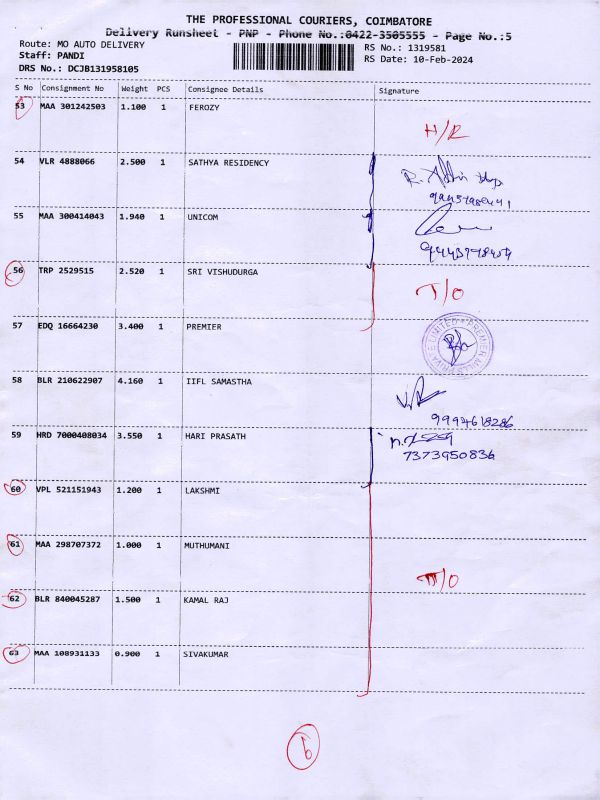 THE PROFESSIONAL COURIERS, COIMBATORE
Delivery Runsheet - PNP - Phone No.:0422-3505555 - Page No.:5
Route: MO AUTO DELIVERY
RS No.: 1319581
Staff: PANDI
RS Date: 10-Feb-2024
DRS No.: DCJB131958105
S No Consignment No Weight PCS Consignee Details Signature
53 MAA 301242503 1.100 1 FEROZY
H/R
54 VLR 4888066 2.500 1 SATHYA RESIDENCY
55 MAA 300414043 1.940 1 UNICOM
56 TRP 2529515 2.520 1 SRI VISHUDURGA
T/O
57 EDQ 16664230 3.400 1 PREMIER
58 BLR 210622907 4.160 1 IIFL SAMASTHA
9994618286
59 HRD 7000408034 3.550 1 HARI PRASATH
7373950836
60 VPL 521151943 1.200 1 LAKSHMI
61 MAA 298707372 1.000 1 MUTHUMANI
T/O
62 BLR 840045287 1.500 1 KAMAL RAJ
63 MAA 108931133 0.900 1 SIVAKUMAR